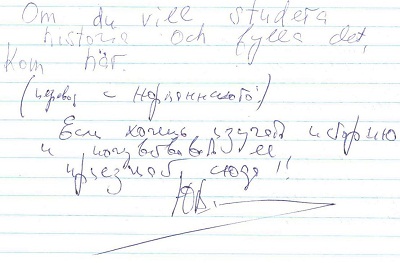 Om du vill studera
historia och fylla det,
Kom här.
(перевод с норвежского:)
Если хочешь изучать историю
и почувствовать ее
приезжай сюда!!
ЮВ.